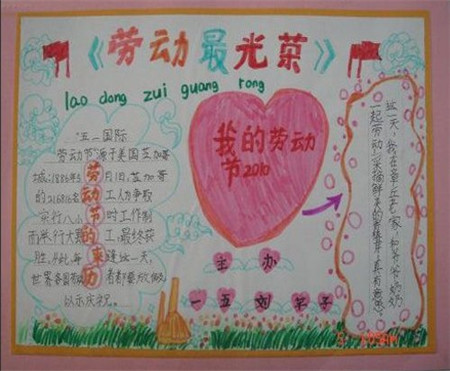 《劳动最光荣》
lao dong zui guang rong
"五一国际
劳动节"源于美国芝加哥
城。1886年5月1日,芝加哥
的216816名工人为争取
实行八小时工作制
而举行大罢工,最终获
胜。每逢这一天,
世界各国者都要放假
以示庆祝。
劳动节的来历
我的劳动
节2010
主办
一五 刘芊子
这一天,我在章丘老家,和爷爷奶奶
一起劳动,采摘鲜美的香椿芽,真有意思。